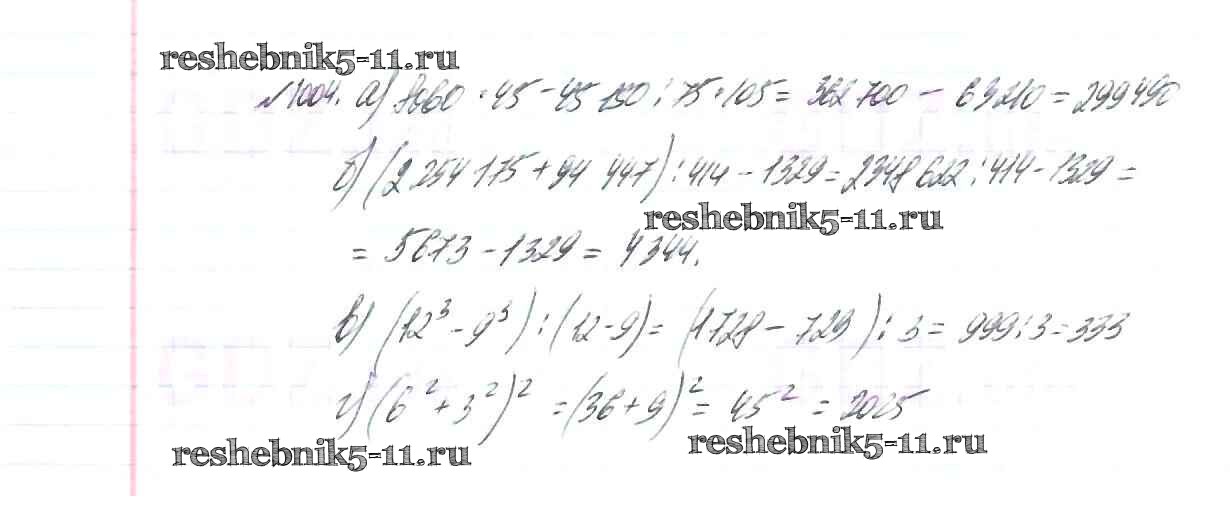 reshebnik5-11.ru
№1004. а) 8060 · 45 - 45 150 : 75 · 105 = 362 700 - 63210 = 299490
б) (2 254 175 + 94 447) : 414 - 1329 = 2348 622 : 414 - 1329 =
reshebnik5-11.ru
= 5673 - 1329 = 4344.
в) (12³ - 9³) : (12 - 9) = (1728 - 729) : 3 = 999 : 3 = 333
г) (6² + 3²)² = (36 + 9)² = 45² = 2025
reshebnik5-11.ru
reshebnik5-11.ru